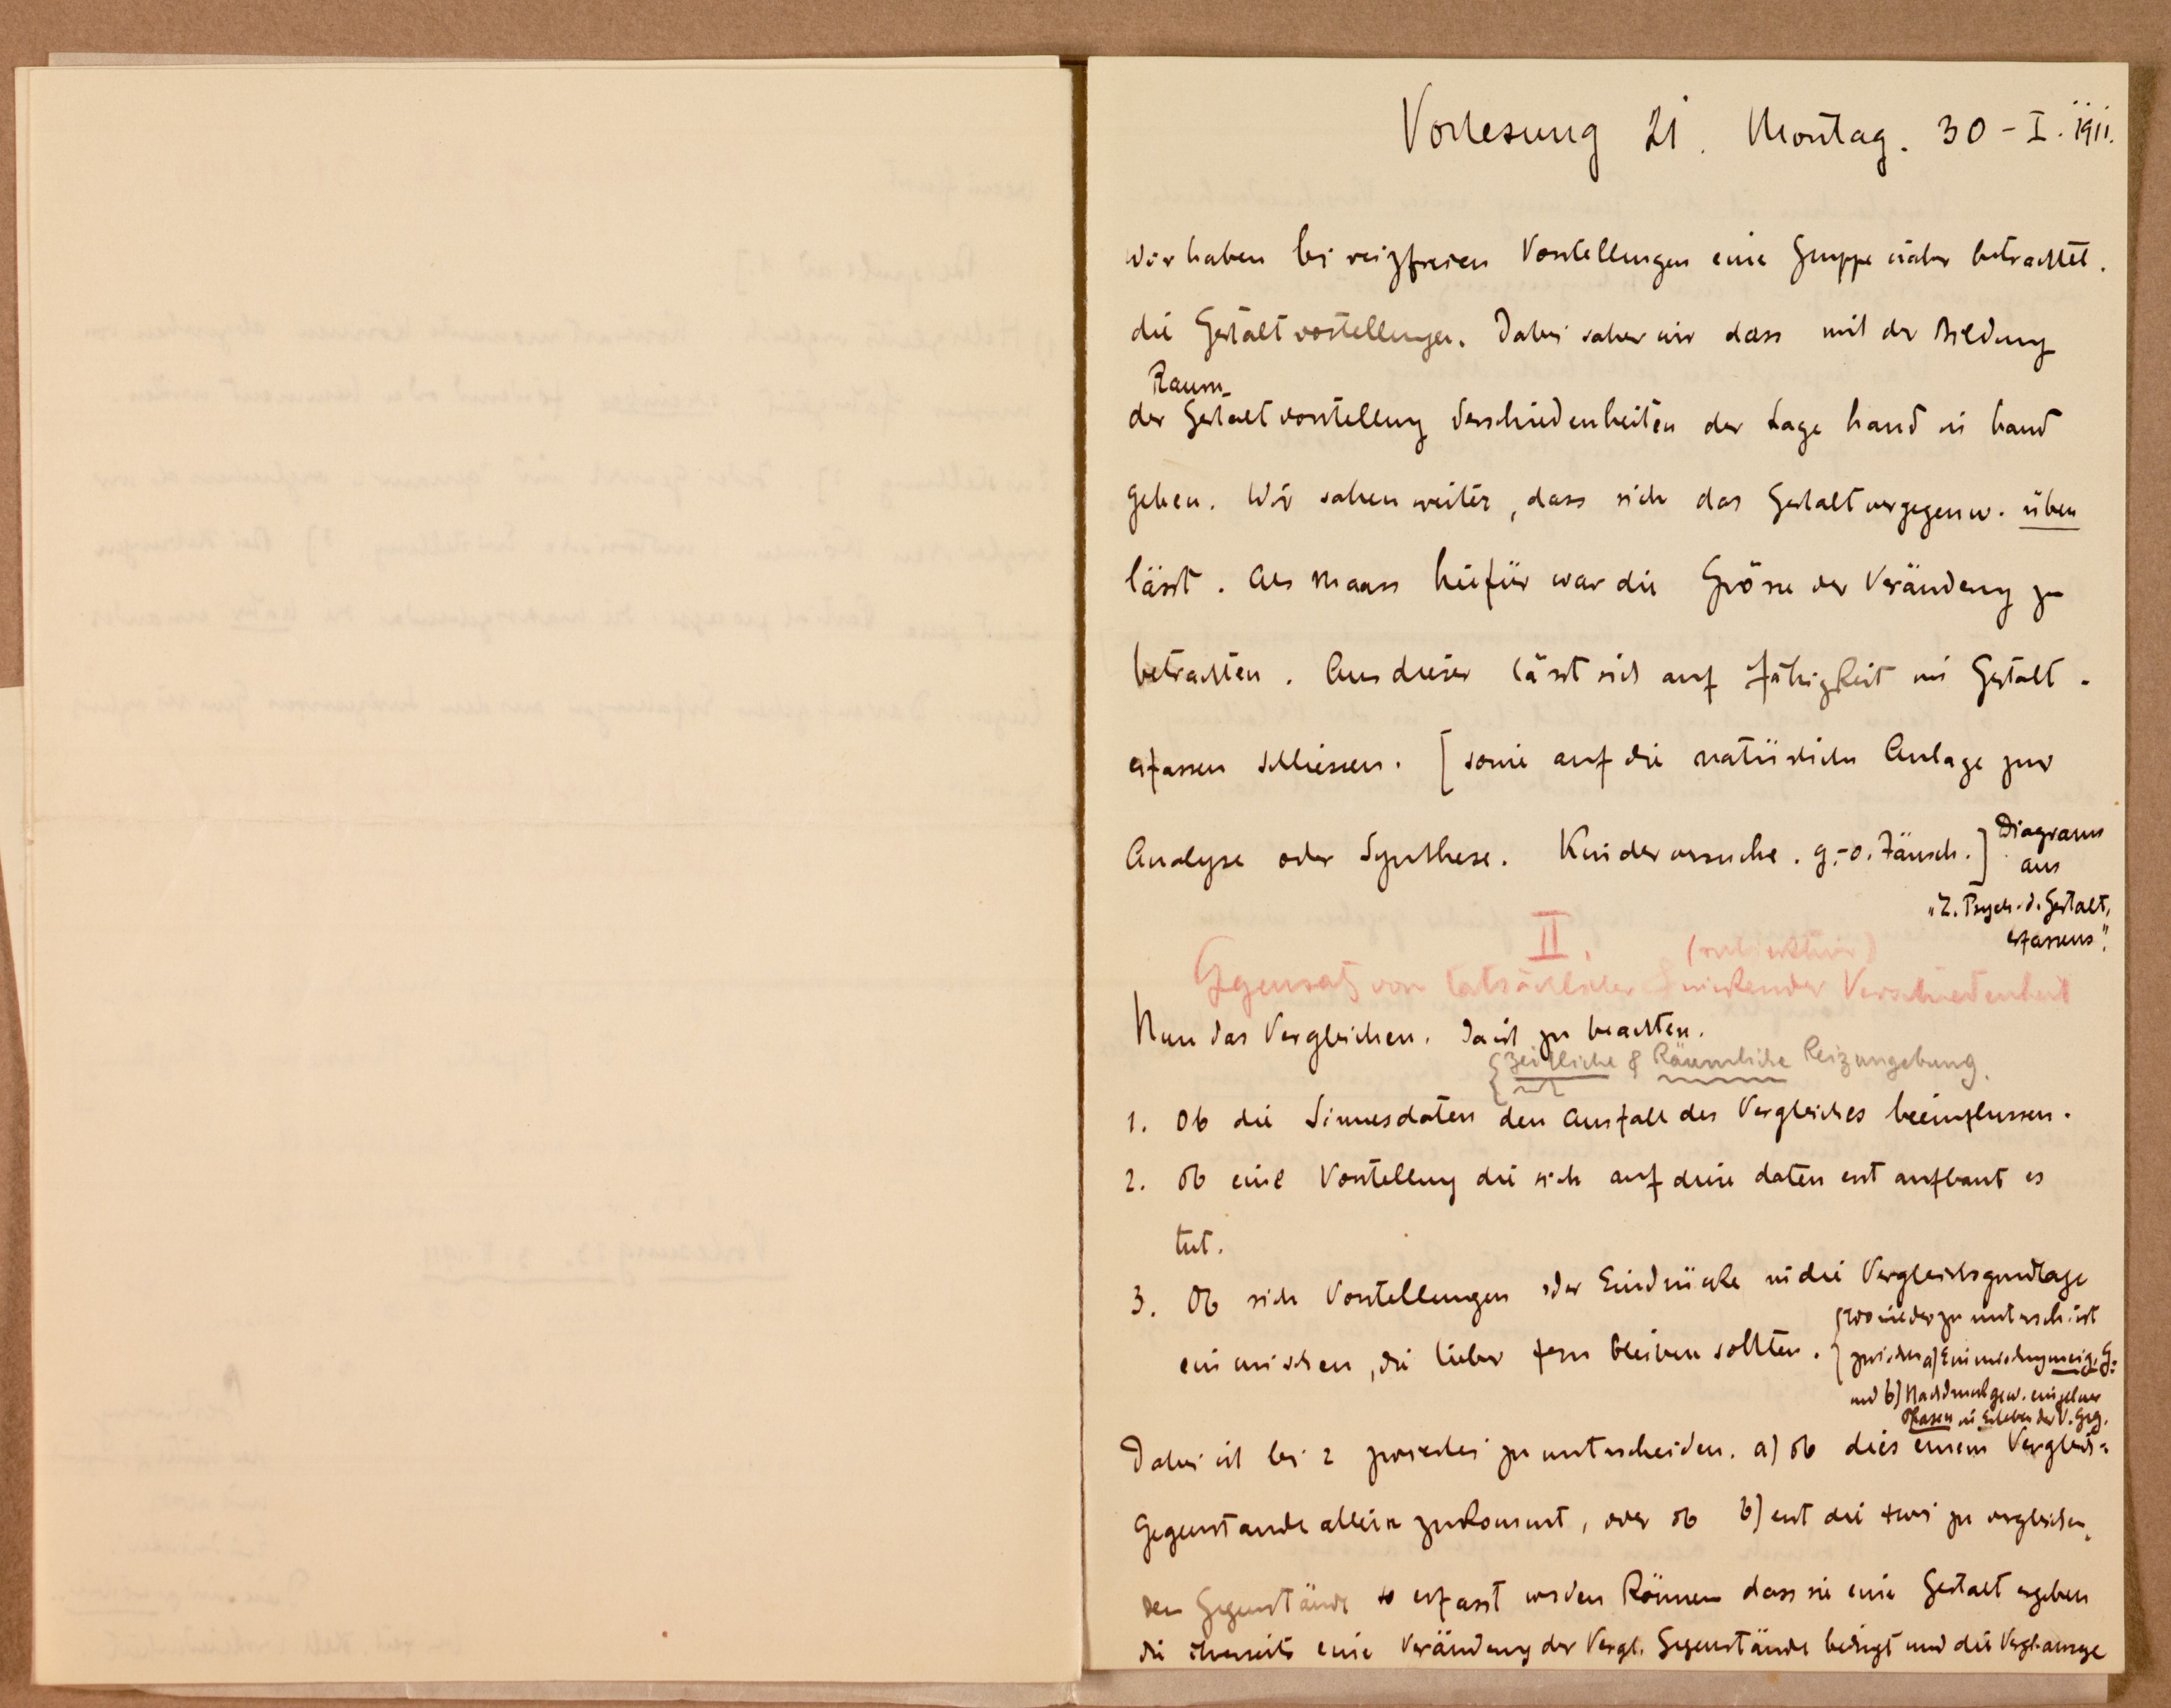 Vorlesung 21. Montag. 30-I. 1911.
Wir haben bei reizfreien Vorstellungen eine Gruppe näher betrachtet.
die Gestaltvorstellungen. Dabei sahen wir dass mit der Bildung
Raum-
der Gestaltvorstellung Verschiedenheiten der Lage hand in hand
gehen. Wir sahen weiter, dass sich das Gestaltvergegenw. üben
lässt. Als Maass hiefür war die Grösse der Verändeng zu
betrachten. Aus dieser lässt sich auf Fähigkeit im Gestalt-
erfassen schliessen. [sowie auf die natürliche Anlage zur
Analyse oder Synthese. Kinderversuche. g.-o. Täusch.]
Diagramm
aus
"Z. Psych. d. Gestalt,
erfassens".
II.
(subjektiv)
Gegensatz von tatsächlicher & wirkender Verschiedenheit
Nun das Vergleichen. Da ist zu beachten.
{zeitliche & Räumliche Reizumgebung.
1. Ob die Sinnesdaten den Ausfall des Vergleiches beeinflussen.
2. Ob eine Vorstellung die sich auf diese daten erst aufbaut es
tut.
3. Ob sich Vorstellungen oder Eindrücke in die Vergleichsgrundlage
einmischen, die lieber fern bleiben sollten.
{wo wieder zu untersch. ist
zwischen a) Einmischung
und b) einzelner
Phasen im Erleben der V. Geg.
Dabei ist bei 2 zweierlei zu unterscheiden. a) ob dies einem Vergleichs-
Gegenstande allein zukommt, oder ob b) erst die zwei zu vergleichen,
den Gegenstände so erfasst werden können dass sie eine Gestalt ergeben
die ihrerseits eine Verändeng der Vergl. Gegenstände bedingt und die